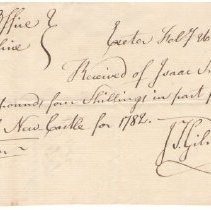 Office }
Exeter Feb.y 26
Received of Isaac
pounds four Shillings in part
New Castle for 1782.
J T Gil